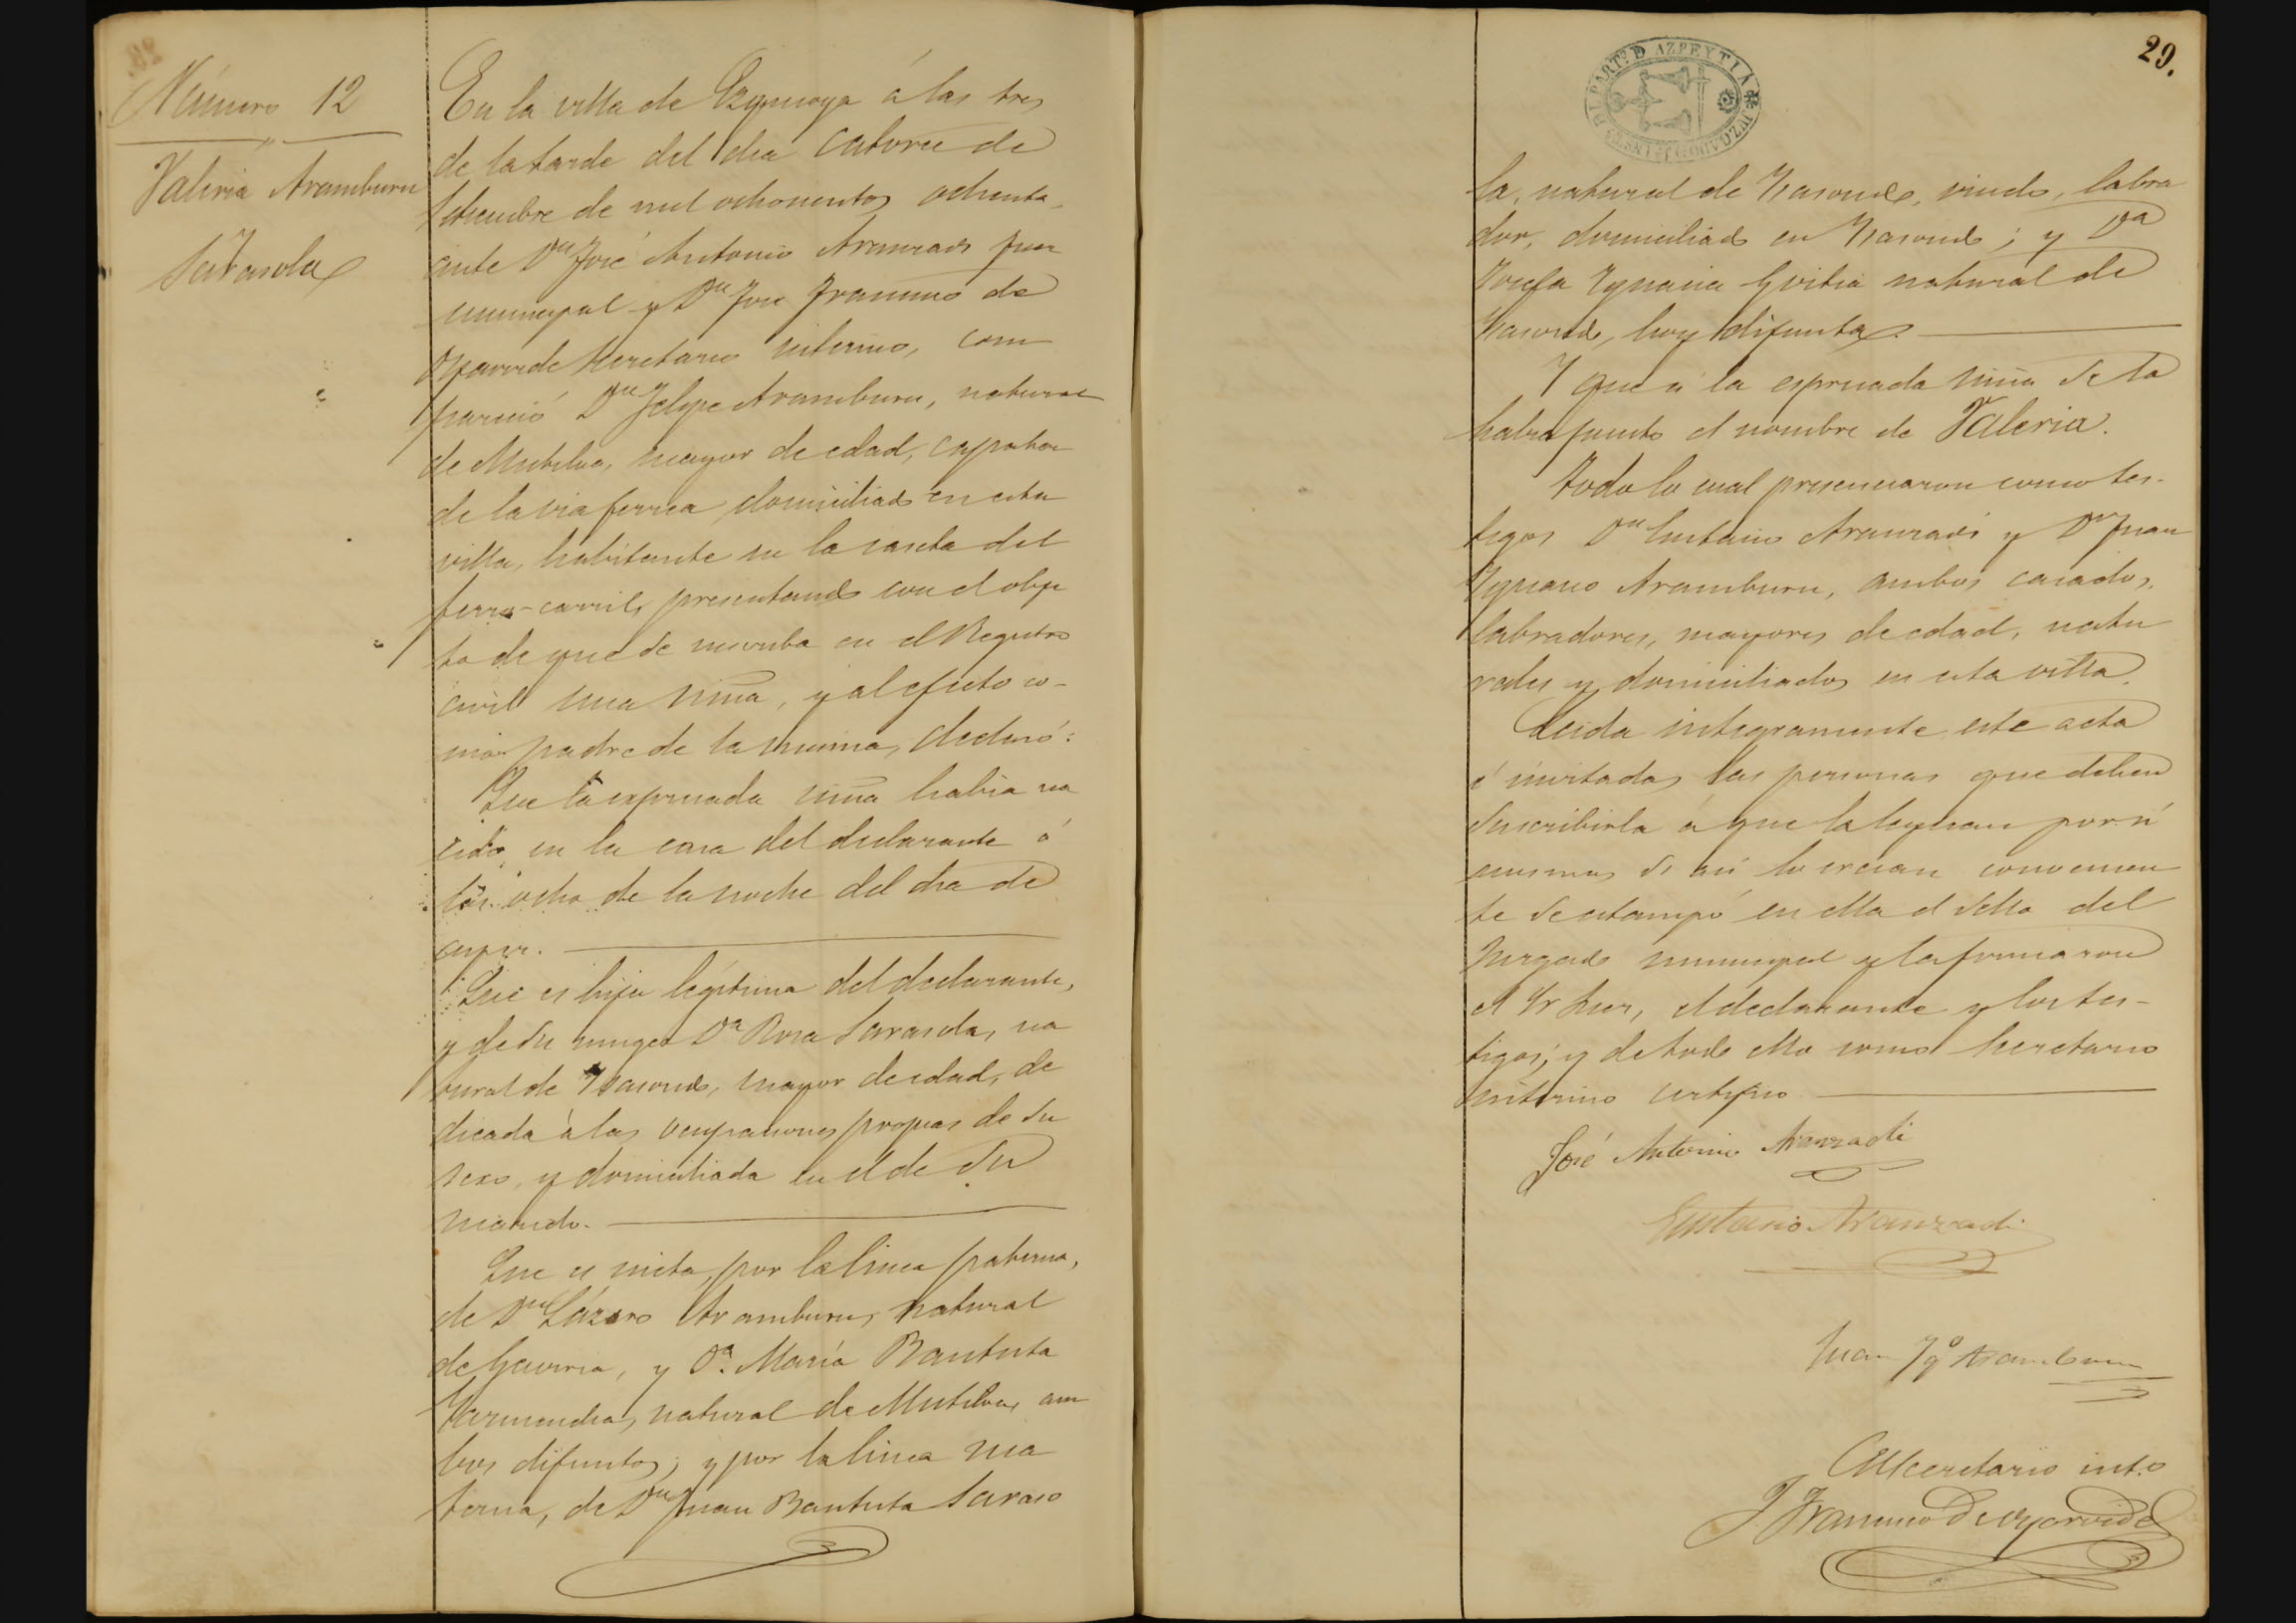 Número 12
Valeria Aramburu
Sarasola
En la villa de Ezquioga á las tres
de la tarde del dia catorce de
Setiembre de mil ochocientos ochenta
ante Dn José Antonio Aranzadi juez
municipal y Dn José Francisco de
Oyarvide Secretario interino, com
pareció Dn Felipe Aramburu, natural
de Mutiloa, mayor de edad, capataz
de la via ferrea domiciliado en esta
villa, habitante en la caseta del
ferro-carril, presentando con el obje
to de que se inscriba en el Registro
civil una niña, y al efecto co-
mo padre de la misma, declaró:
Que la expresada niña habia na
cido en la casa del declarante á
las ocho de la noche del dia de
ayer.
Que es hija legítima del declarante,
y de su muger Da Rosa Sarasola, na
tural de Ysasondo, mayor de edad, de
dicada á las ocupaciones propias de su
sexo, y domiciliada en el de su
marido.
Que es nieta, por la linea paterna,
de Dn Lázaro Aramburu, natural
de Gaviria, y Da. María Bautista
Yarmendia, natural de Mutiloa, am
bos difuntos; y por la linea ma
terna, de Dn Juan Bautista Saraso
29.
JUZGADO DE 1ª INSTª DEL PARTº D AZPEYTIA
la, natural de Ysasondo, viudo, labra
dor, domiciliado en Ysasondo; y Da
Josefa Ygnacia natural de
Ysasondo, hoy difunta.
Y que á la espresada niña se la
habia puesto el nombre de Valeria.
Todo lo cual presenciaron como tes-
tigos Dn Eustasio Aranzadi y Dn Juan
Ygnacio Aramburu, ambos casados,
labradores, mayores de edad, natu
rales y domiciliados en esta villa.
Leida integramente este acta
é invitadas las personas que deben
suscribirla á que la leyeran por sí
mismas si así lo creian convenien
te se estampó en ella el sello del
Juzgado municipal y la firmaron
el Sr Juez, el declarante y los tes-
tigos; y de todo ello como Secretario
interino certifico
José Antonio Aranzadi
Eustasio Aranzadi
Juan Ygo Aramburu
El Secretario int.o
J. Francisco de Oyarvide